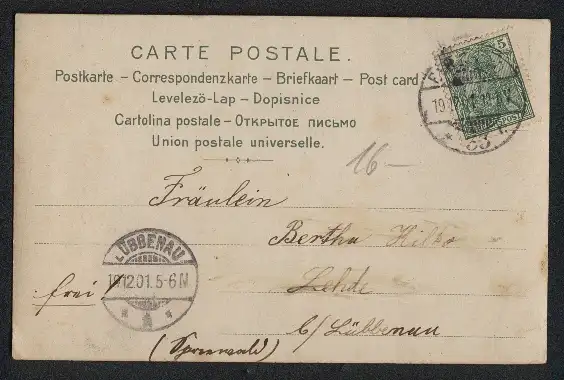 CARTE POSTALE.
Postkarte – Correspondenzkarte – Briefkaart – Post card
Levelezö-Lap – Dopisnice
Cartolina postale – Открытое письмо
Union postale universelle.
5
16–
Fräulein
Bertha
LÜBBENAU
12.01.5-6N
Lehde
frei!
b/Lübbenau
(Spreewald)